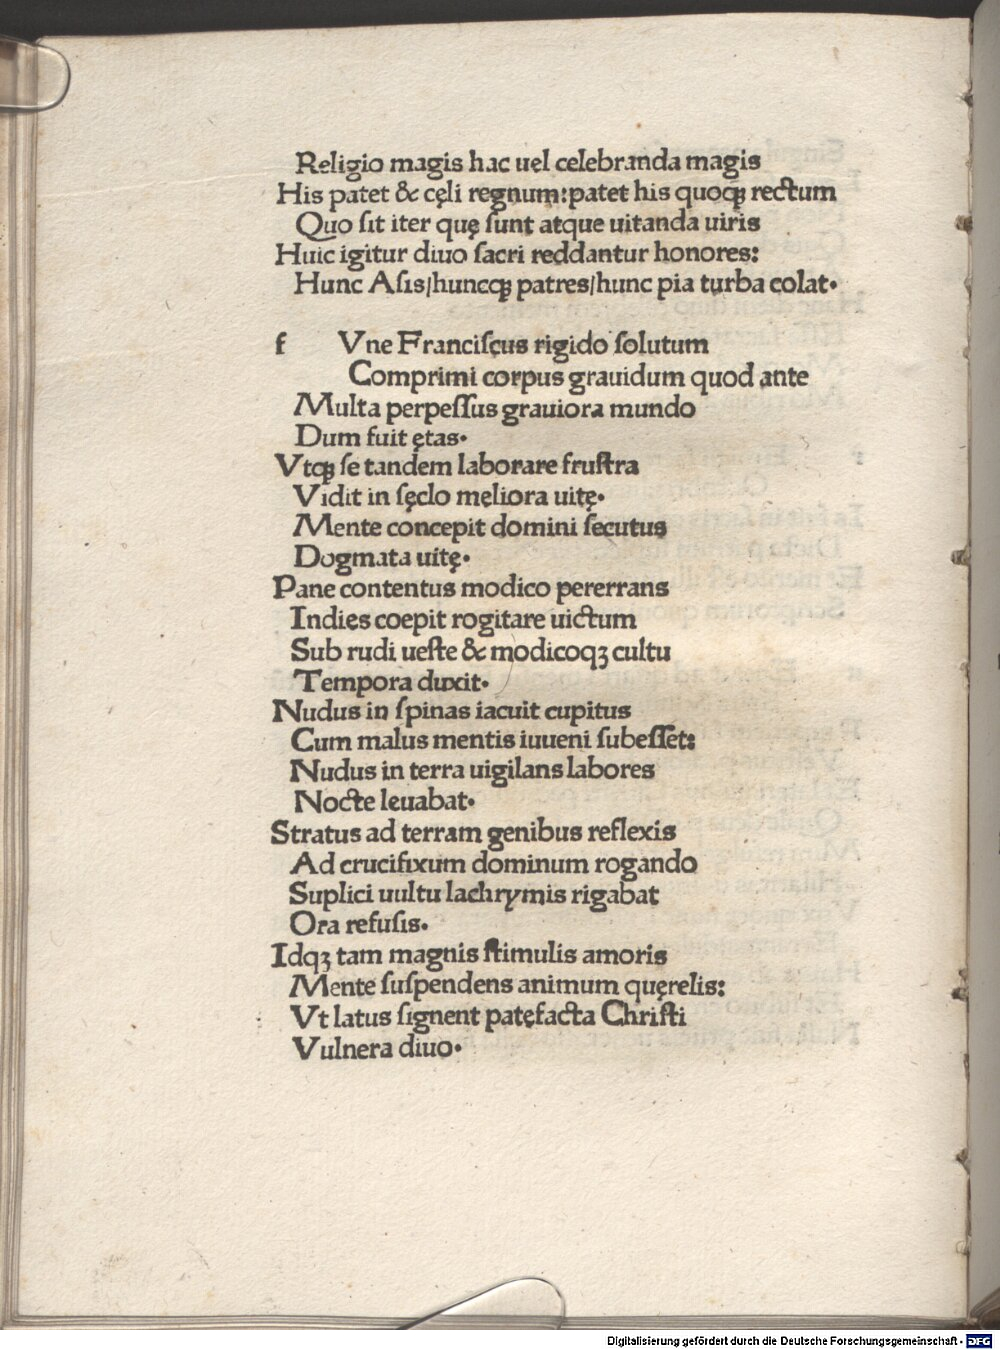 Religio magis hac uel celebranda magis
His patet & cęli regnum: patet his quoqꝫ rectum
Quo ſit iter quę ſunt atque uitanda uiris
Huic igitur diuo ſacri reddantur honores:
Hunc Aſis/huncqꝫ patres/hunc pia turba colat.
f Vne Franciſcus rigido ſolutum
Comprimi corpus grauidum quod ante
Multa perpeſſus grauiora mundo
Dum fuit ętas.
Vtqꝫ ſe tandem laborare fruſtra
Vidit in ſęclo meliora uitę.
Mente concepit domini ſecutus
Dogmata uitę.
Pane contentus modico pererrans
Indies coepit rogitare uictum
Sub rudi ueſte & modicoqꝫ cultu
Tempora duxit.
Nudus in ſpinas iacuit cupitus
Cum malus mentis iuueni ſubeſſet:
Nudus in terra uigilans labores
Nocte leuabat.
Stratus ad terram genibus reflexis
Ad crucifixum dominum rogando
Suplici uultu lachrymis rigabat
Ora refuſis.
Idqꝫ tam magnis ſtimulis amoris
Mente ſuſpendens animum quęrelis:
Vt latus ſignent patęfacta Chriſti
Vulnera diuo.
Digitalisierung gefördert durch die Deutsche Forschungsgemeinschaft - DFG